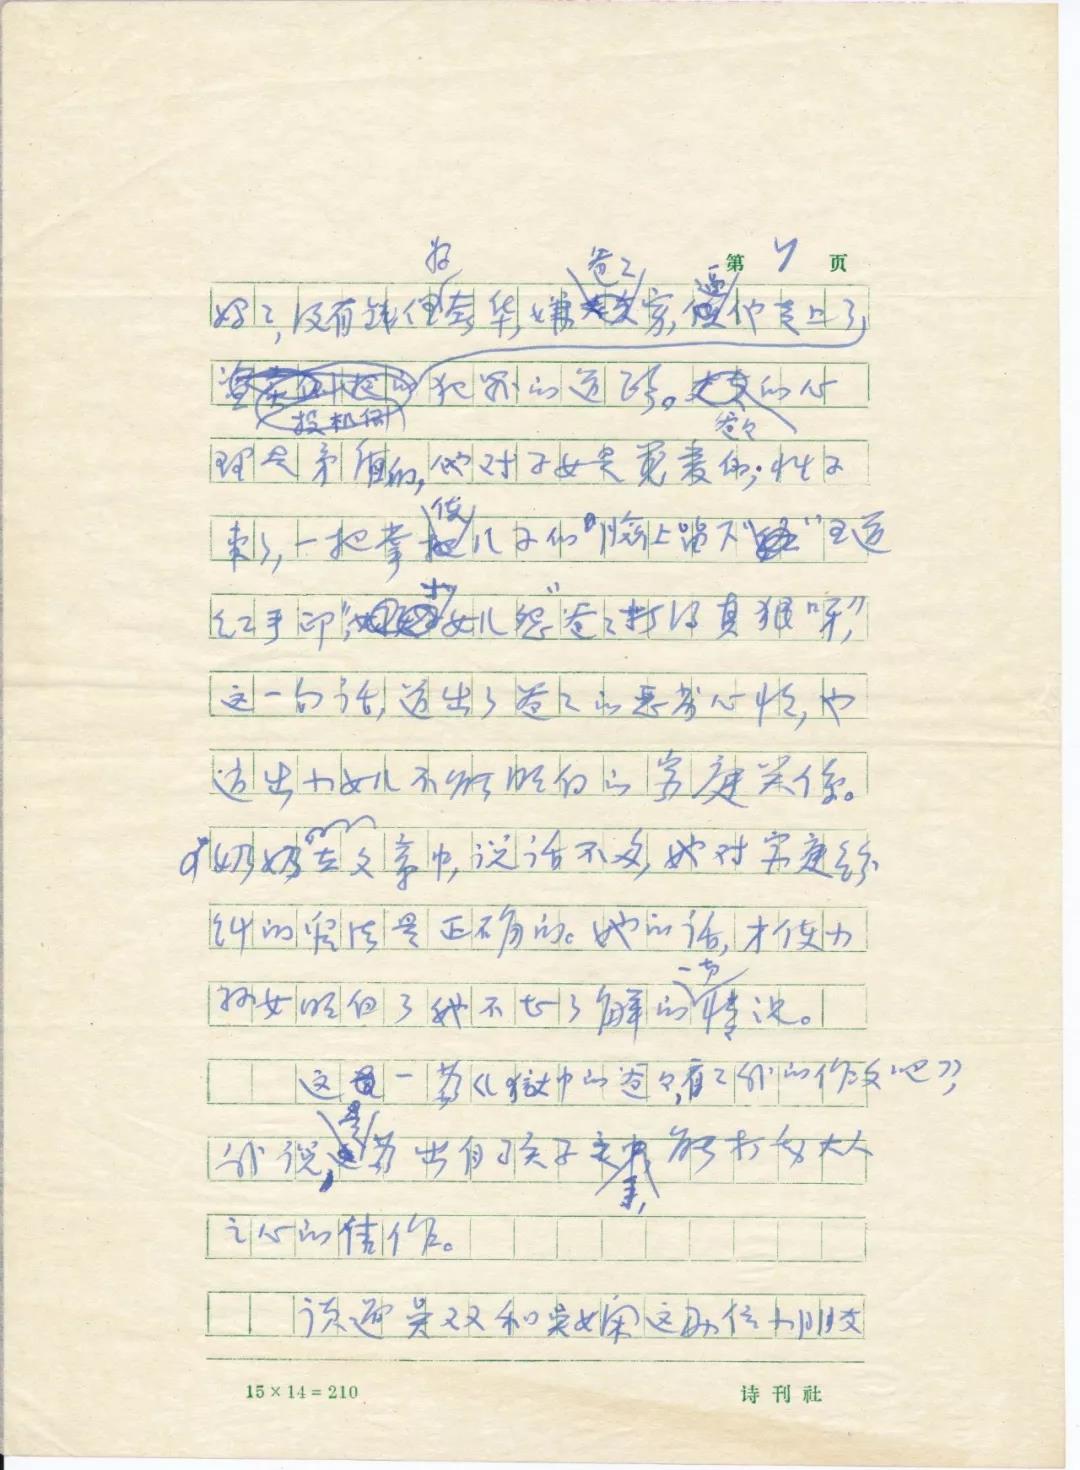 第 7 页
好了,没有钱但奢华,嫌爸爸穷,逼他走上了
犯罪的道路。爸爸的心
投机倒
理是矛盾的,他对子女是宽爱的;性子
来了,一把掌使儿子们“脸上留下五道
红手印”,小女儿怨“爸爸打得真狠呀”,
这一句话,道出了爸爸的恶劣心情,也
道出小女儿不能明白的家庭关系。
奶奶在文章中,说话不多,她对家庭纷
纠的看法是正确的。她的话,才使小
孙女明白了她不能了解的一切情况。
这是一篇《狱中的爸爸,看看我的作文吧》,
我说,是篇出自孩子之手,能打动大人
之心的佳作。
读过吴双和吴婕这两位小朋友
15×14=210
诗刊社